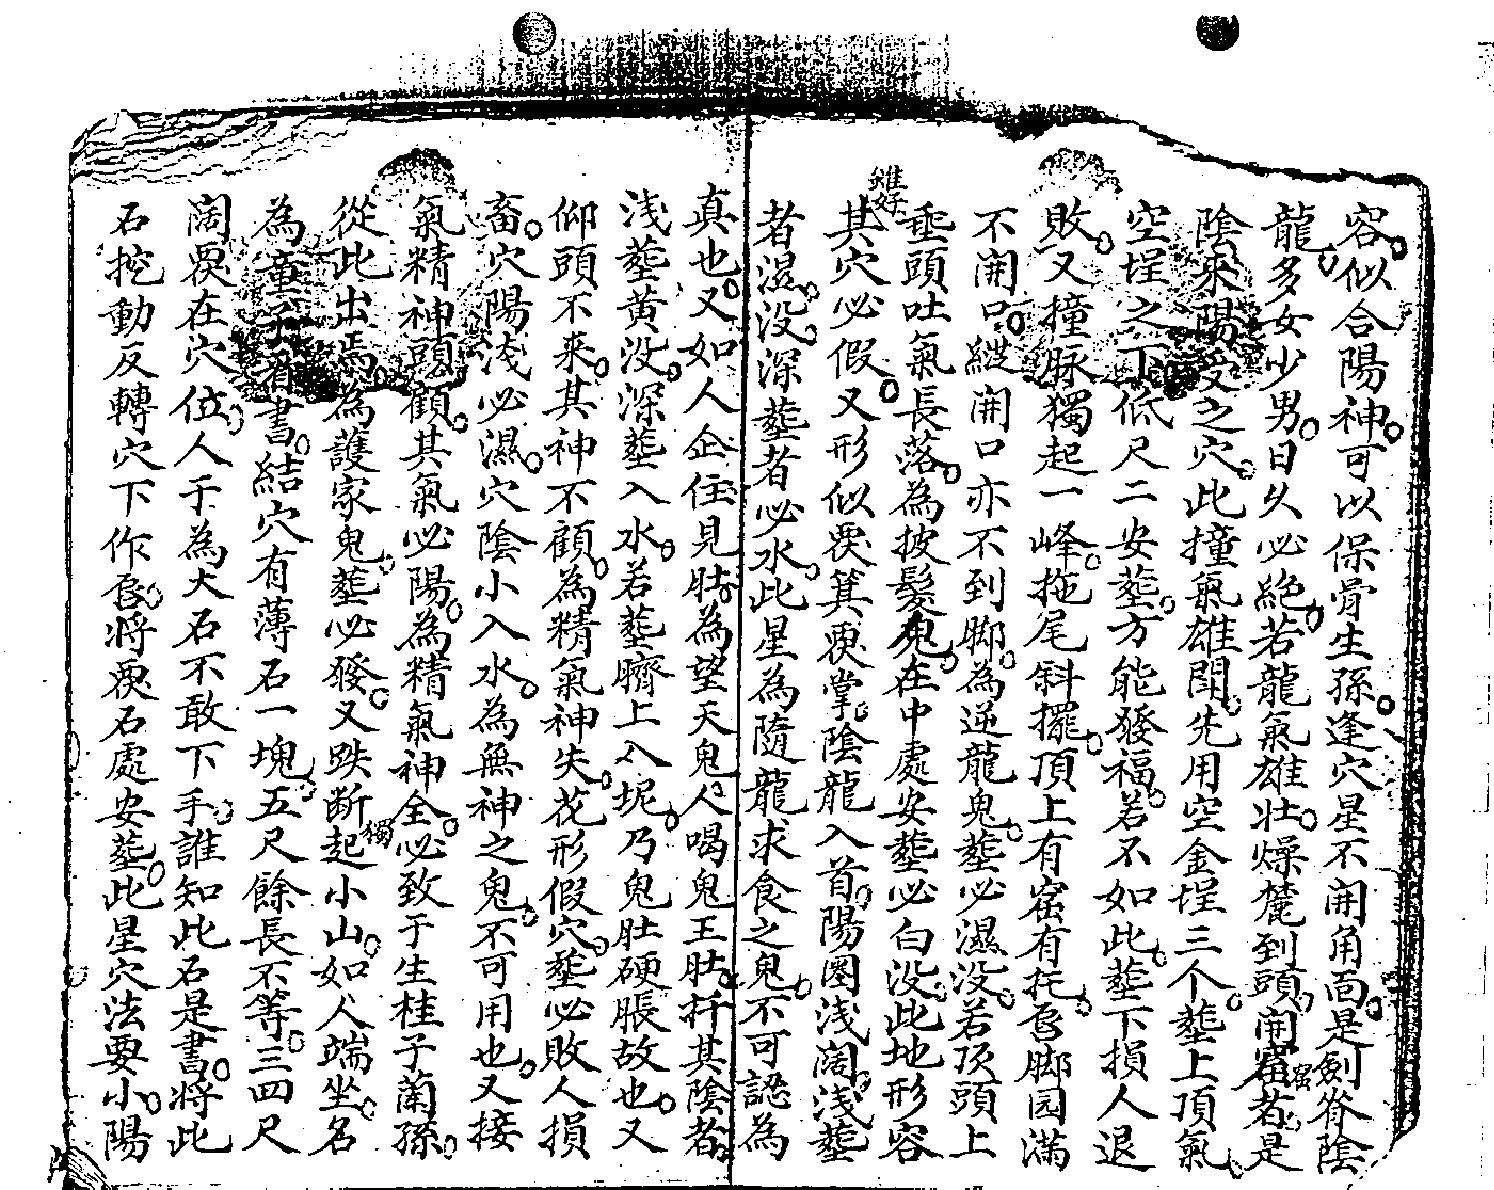 容似合陽神可以保骨生孫逢穴星不開角面是劍脊陰
龍多女少男日久必絕若龍氣雄壯燥麓到頭開窩若是
陰來陽受之穴此撞氣雄閗先用空金埕三个塟上頂氣
空埕之下低尺二安塟方能發福若不如此塟下損人退
敗又撞脉獨起一峰拖尾斜擺頂上有窟有托唇脚园滿
不開口縱開口亦不到脚為逆龍鬼塟必濕没若頂頭上
垂頭吐氣長落為披髮鬼在中處安塟必白没此地形容
雖好
其穴必假又形似眼箕眼掌陰龍入首陽圏浅闊浅塟
者濕没深塟者必水此星為隨龍求食之鬼不可認為
真也又如人企住見肚為望天鬼人喝鬼王肚扦其陰者
浅塟黄没深塟入水若塟臍上入坭乃鬼肚硬脹故也又
仰頭不来其神不顧為精氣神失花形假穴塟必敗人損
畜穴陽浅必濕穴陰小入水為無神之鬼不可用也又接
氣精神頭顧其氣必陽為精氣神全必致于生桂子蘭孫
從此出焉為護家鬼塟必發又跌断獨起小山如人端坐名
為童子看書結穴有薄石一塊五尺餘長不等三四尺
闊眼在穴位人于為大石不敢下手誰知此石是書將此
石挖動反轉穴下作唇將眼石處安塟此星穴法要小陽